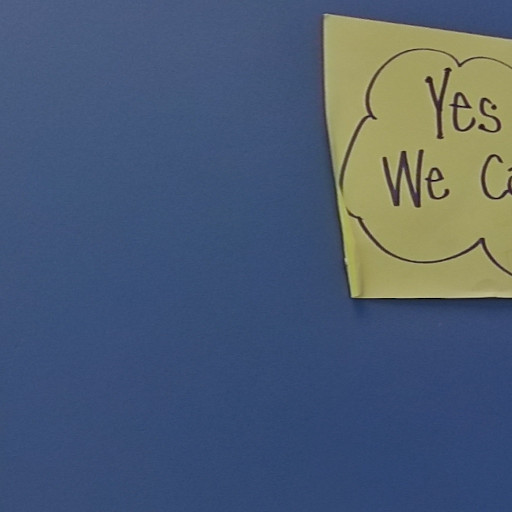 Yes
We Ca